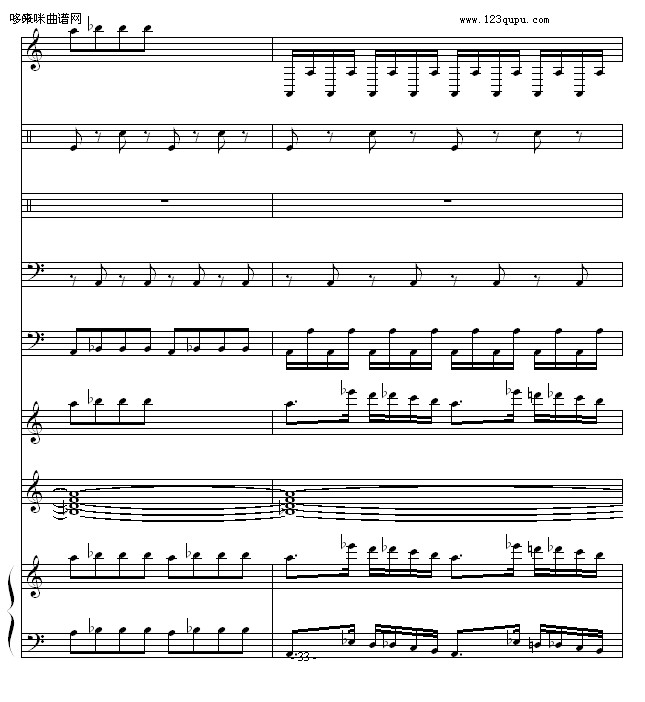 哆来咪曲谱网
www.123qupu.com
- 33 -